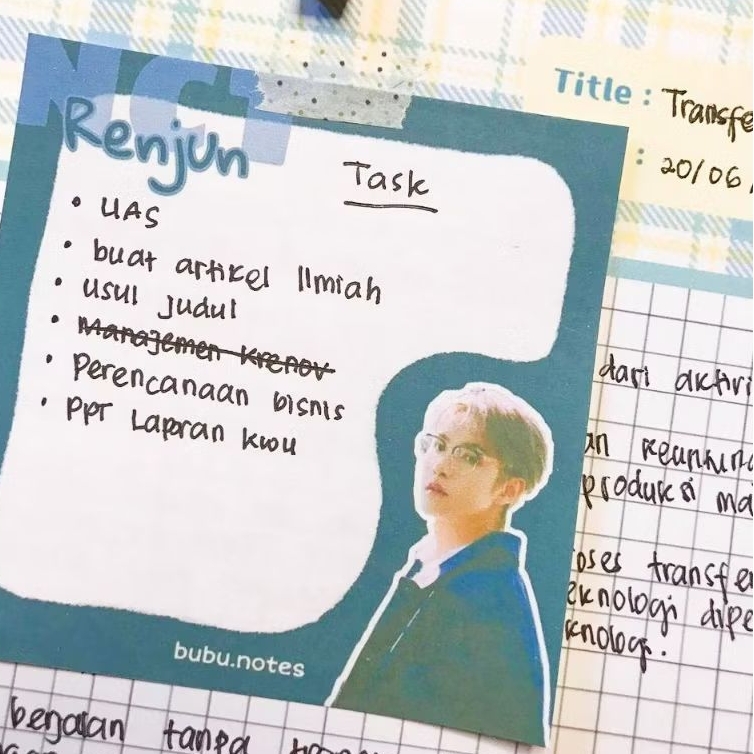 NCT
Renjun
Task
• UAS
• buat artikel Ilmiah
• usul judul
• Manajemen Krenov
• Perencanaan bisnis
• PPT Laporan kwu
bubu.notes
Title : Transfe
: 20/06/
dari aktivi
an keuntun
produksi ma
oses transfe
eknologi dipe
knologi.
berjalan tanpa